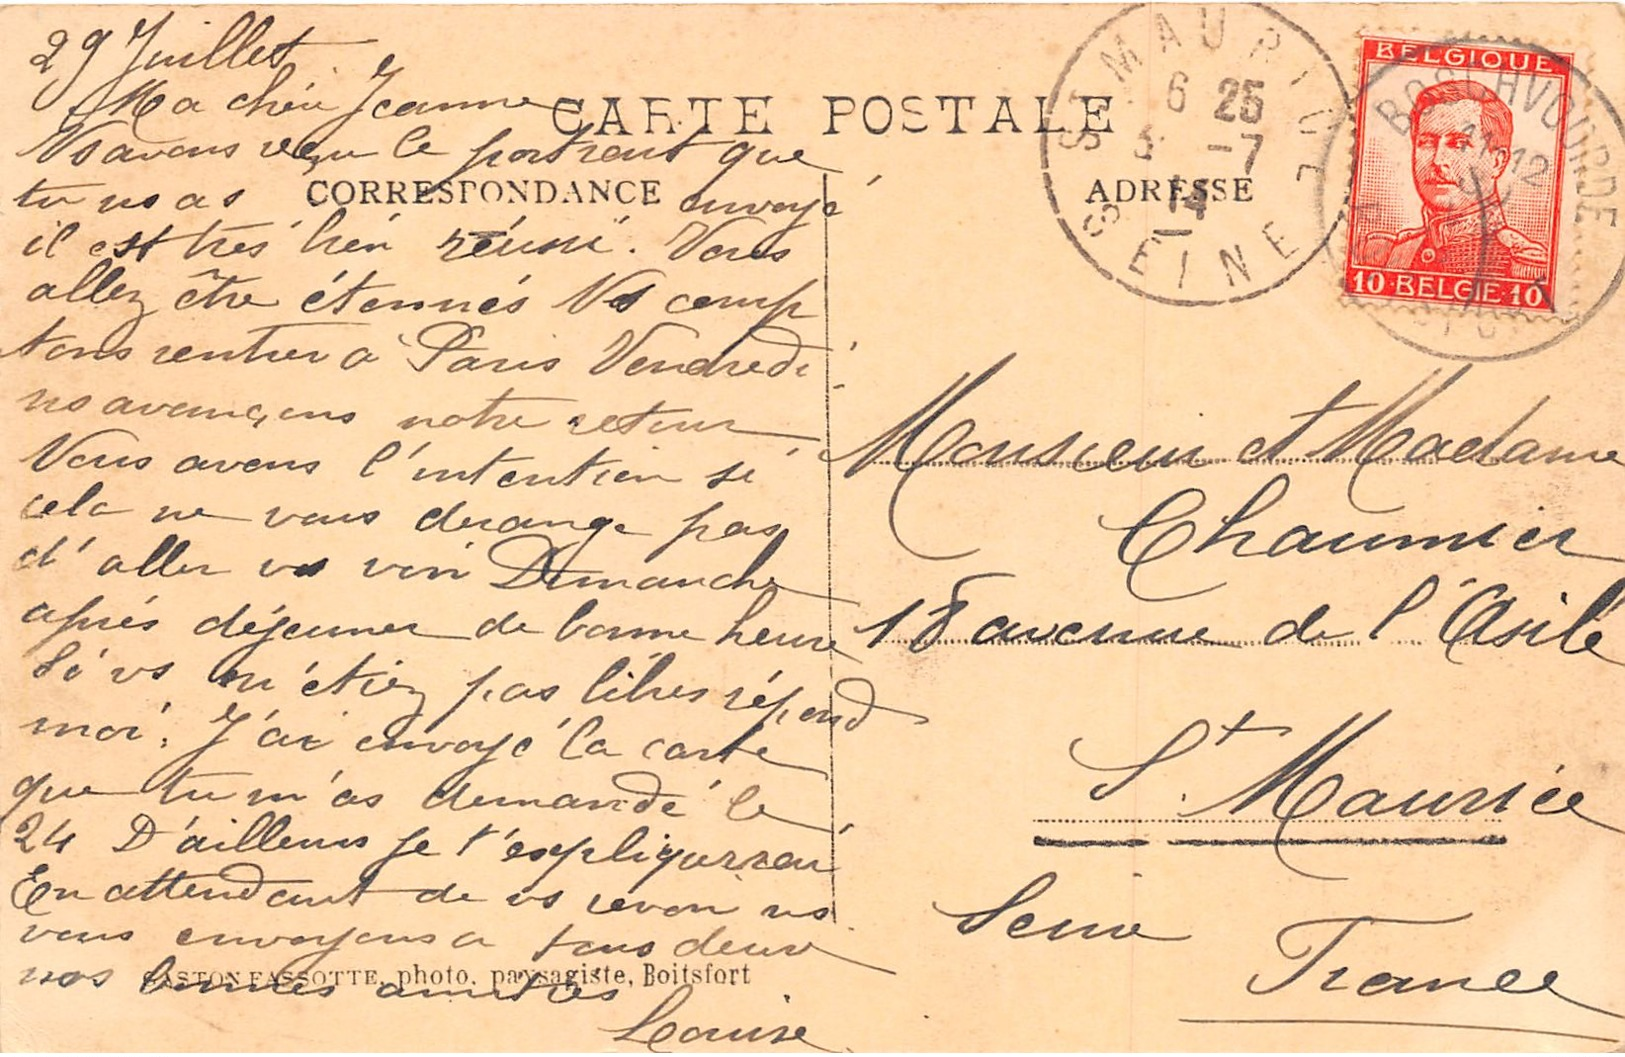 29 Juillet
Ma chère Jeanne
Ns avons reçu le portrait que
tu ns as envoyé
il est très bien réussi. Vous
allez être étonnés Ns comp
tons rentrer à Paris Vendredi
ns avançons notre retour
Nous avons l'intention si
cela ne vous derange pas
d'aller vs voir Dimanche
après déjeuner de bonne heure
Si vs n'étiez pas libres répond
moi. J'ai envoyé la carte
que tu m'as demandé le
24 D'ailleurs je t'expliquerrai
En attendant de vs revoir ns
vous envoyons a tous deux
nos bonnes amitiés
Louise
CARTE POSTALE
CORRESPONDANCE
ADRESSE
GASTON FASSOTTE, photo. paysagiste, Boitsfort
ST MAURICE
6 25
31 -7
14
SEINE
BELGIQUE
10 BELGIE 10
BOSCHVOORDE
11-12
Monsieur et Madame
Chaumier
18 avenue de l'Asile
St Maurice
Seine
France